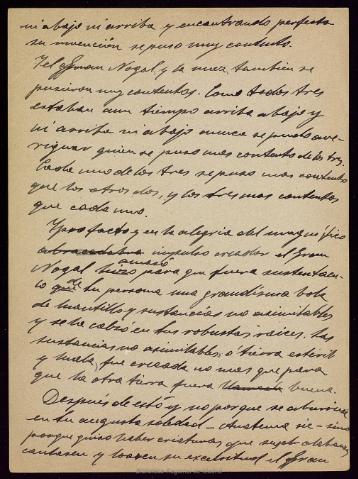 ni abajo ni arriba y encontrando perfecta
su invención se puso muy contento.
Y el gran Nogal y la nuez también se
pusieron muy contentos. Como todos tres
estaban a un tiempo arriba abajo y
ni arriba ni abajo nunca se pudo ave-
riguar quien se puso mas contento de los tres.
Cada uno de los tres se puso mas contento
que los otros dos, y los tres mas contentos
que cada uno.
Ypso facto y en la alegria del magnifico
impulso creador el Gran
Nogal amasó para que fuera sustentacu-
lo de su persona una grandisima bola
de mantillo y sustancias no asimilables
y se la calzó en sus robustas raices. Las
sustancias no asimilables, o tierra estéril
y mala, fue creada no mas que para
que la otra tierra fuera buena.
Después de esto y no porque se aburriera
en su augusta soledad
porque quiso haber criaturas que
cantasen y loasen su excelsitud el Gran